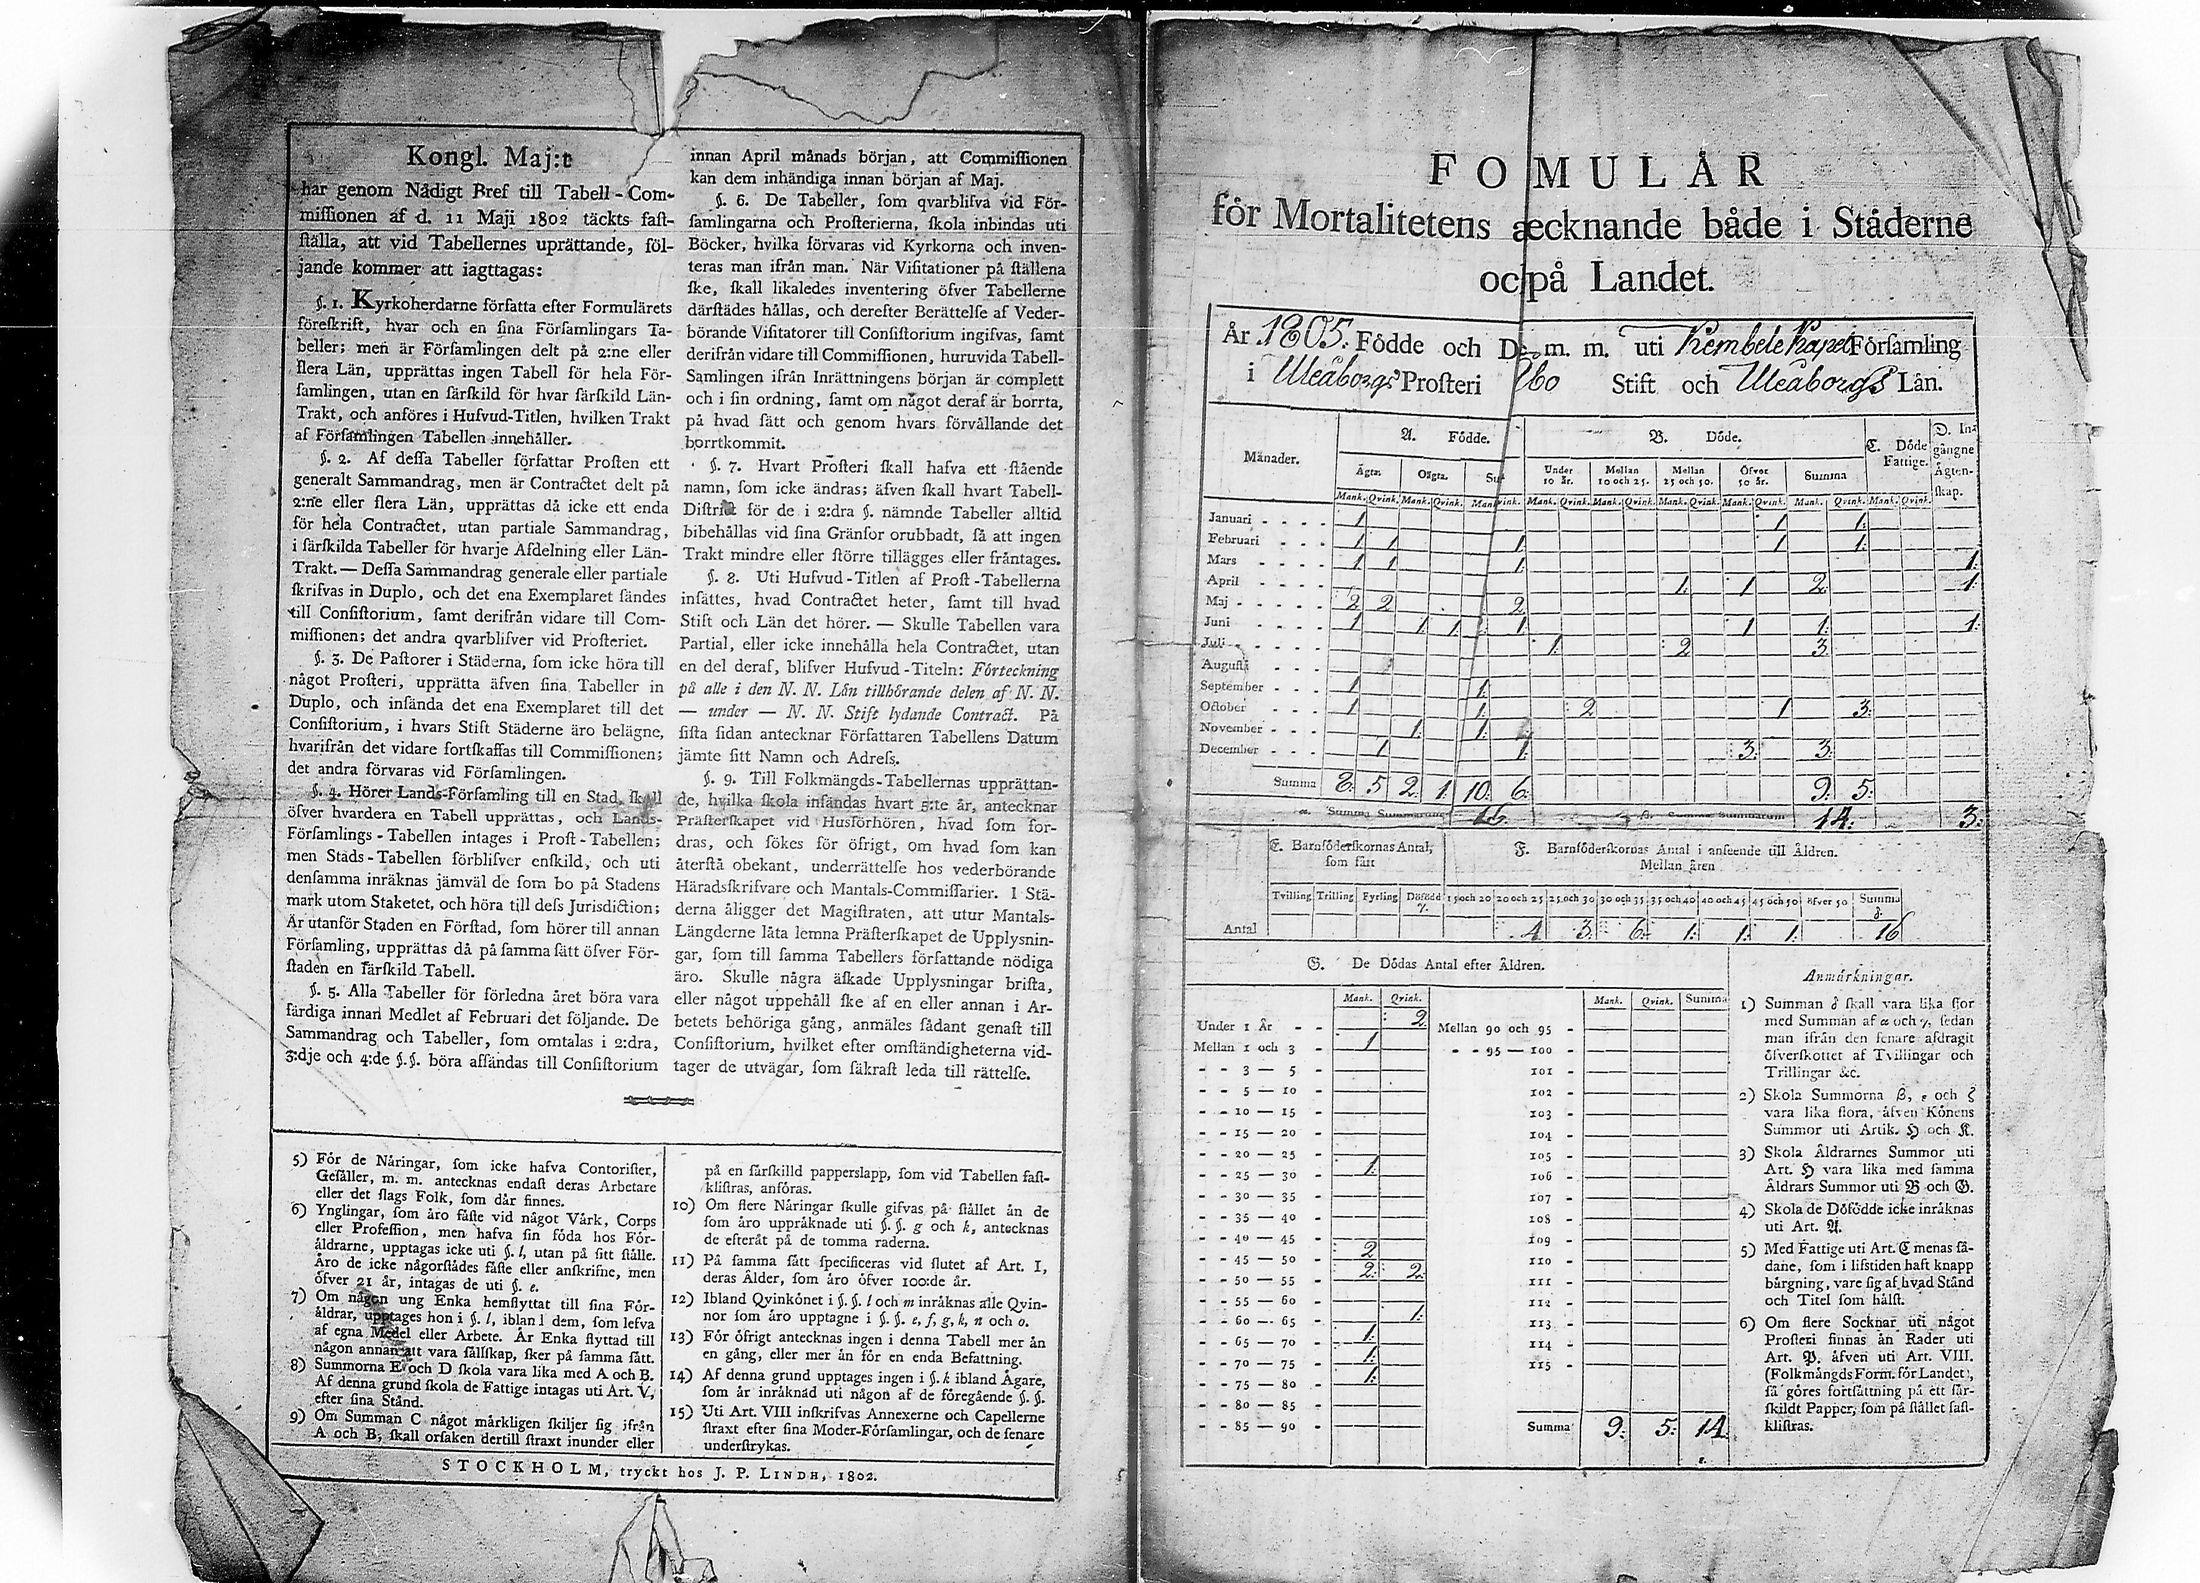 Kongl. Maj:t
har genom Nådigt Bref till Tabell-Com-
missionen af d. 11 Maji 1802 täckts fast-
ställa, att vid Tabellernes uprättande, föl-
jande kommer att iagttagas:
§. 1. Kyrkoherdarne författa efter Formulärets
föreskrift, hvar och en sina Församlingars Ta-
beller; men är Församlingen delt på 2:ne eller
flera Län, upprättas ingen Tabell för hela För-
samlingen, utan en särskild för hvar särskild Län-
Trakt, och anföres i Hufvud-Titlen, hvilken Trakt
af Församlingen Tabellen innehåller.
§. 2. Af dessa Tabeller författar Prosten ett
generalt Sammandrag, men är Contractet delt på
2:ne eller flera Län, upprättas då icke ett enda
för hela Contractet, utan partiale Sammandrag,
i särskilda Tabeller för hvarje Afdelning eller Län-
Trakt. — Dessa Sammandrag generale eller partiale
skrifvas in Duplo, och det ena Exemplaret sändes
till Consistorium, samt derifrån vidare till Com-
missionen; det andra qvarblifver vid Prosteriet.
§. 3. De Pastorer i Städerna, som icke höra till
något Prosteri, upprätta äfven sina Tabeller in
Duplo, och insända det ena Exemplaret till det
Consistorium, i hvars Stift Städerne äro belägne,
hvarifrån det vidare fortskaffas till Commissionen;
det andra förvaras vid Församlingen.
§. 4. Hörer Lands-Församling till en Stad, skall
öfver hvardera en Tabell upprättas, och Lands-
Församlings-Tabellen intages i Prost-Tabellen;
men Stads-Tabellen förblifver enskild, och uti
densamma inräknas jämväl de som bo på Stadens
mark utom Staketet, och höra till dess Jurisdiction;
Är utanför Staden en Förstad, som hörer till annan
Församling, upprättas då på samma sätt öfver För-
staden en särskild Tabell.
§. 5. Alla Tabeller för förledna året böra vara
färdiga innan Medlet af Februari det följande. De
Sammandrag och Tabeller, som omtalas i 2:dra,
3:dje och 4:de §.§. böra afsändas till Consistorium
innan April månads början, att Commissionen
kan dem inhändiga innan början af Maj.
§. 6. De Tabeller, som qvarblifva vid För-
samlingarna och Prosterierna, skola inbindas uti
Böcker, hvilka förvaras vid Kyrkorna och inven-
teras man ifrån man. När Visitationer på ställena
ske, skall likaledes inventering öfver Tabellerne
därstädes hållas, och derefter Berättelse af Veder-
börande Visitatorer till Consistorium ingifvas, samt
derifrån vidare till Commissionen, huruvida Tabell-
Samlingen ifrån Inrättningens början är complett
och i sin ordning, samt om något deraf är borrta,
på hvad sätt och genom hvars förvållande det
borrtkommit.
§. 7. Hvart Prosteri skall hafva ett stående
namn, som icke ändras; äfven skall hvart Tabell-
Distrikt för de i 2:dra §. nämnde Tabeller alltid
bibehållas vid sina Gränsor orubbadt, så att ingen
Trakt mindre eller större tillägges eller fråntages.
§. 8. Uti Hufvud-Titlen af Prost-Tabellerna
insättes, hvad Contractet heter, samt till hvad
Stift och Län det hörer. — Skulle Tabellen vara
Partial, eller icke innehålla hela Contractet, utan
en del deraf, blifver Hufvud-Titeln: Förteckning
på alle i den N. N. Län tillhörande delen af N. N.
— under — N. N. Stift lydande Contract. På
sista sidan antecknar Författaren Tabellens Datum
jämte sitt Namn och Adress.
§. 9. Till Folkmängds-Tabellernas upprättan-
de, hvilka skola insändas hvart 5:te år, antecknar
Prästerskapet vid Husförhören, hvad som for-
dras, och sökes för öfrigt, om hvad som kan
återstå obekant, underrättelse hos vederbörande
Häradsskrifvare och Mantals-Commissarier. I Stä-
derna åligger det Magistraten, att utur Mantals-
Längderne låta lemna Prästerskapet de Upplysnin-
gar, som till samma Tabellers författande nödiga
äro. Skulle några äskade Upplysningar brista,
eller något uppehåll ske af en eller annan i Ar-
betets behöriga gång, anmäles sådant genast till
Consistorium, hvilket efter omständigheterna vid-
tager de utvägar, som säkrast leda till rättelse.
5) För de Näringar, som icke hafva Contorister,
Gesäller, m. m. antecknas endast deras Arbetare
eller det slags Folk, som där finnes.
6) Ynglingar, som äro fäste vid något Värk, Corps
eller Profession, men hafva sin föda hos För-
äldrarne, upptagas icke uti §. l, utan på sitt ställe.
Äro de icke någorstädes fäste eller anskrifne, men
öfver 21 år, intagas de uti §. e.
7) Om någon ung Enka hemflyttat till sina För-
äldrar, upptages hon i §. l, ibland dem, som lefva
af egna Medel eller Arbete. Är Enka flyttad till
någon annan att vara sällskap, sker på samma sätt.
8) Summorna E och D skola vara lika med A och B.
Af denna grund skola de Fattige intagas uti Art. V,
efter sina Stånd.
9) Om Summan C något märkligen skiljer sig ifrån
A och B, skall orsaken dertill straxt inunder eller
på en särskilld papperslapp, som vid Tabellen fast-
klistras, anföras.
10) Om flere Näringar skulle gifvas på stället än de
som äro uppräknade uti §.§. g och k, antecknas
de efteråt på de tomma raderna.
11) På samma sätt specificeras vid slutet af Art. I,
deras Ålder, som äro öfver 100:de år.
12) Ibland Qvinkönet i §.§. l och m inräknas alle Qvin-
nor som äro upptagne i §.§. e, f, g, k, n och o.
13) För öfrigt antecknas ingen i denna Tabell mer än
en gång, eller mer än för en enda Befattning.
14) Af denna grund upptages ingen i §. k ibland Ägare,
som är inräknad uti någon af de föregående §.§.
15) Uti Art. VIII inskrifvas Annexerne och Capellerne
straxt efter sina Moder-Församlingar, och de senare
understrykas.
STOCKHOLM, tryckt hos J. P. LINDH, 1802.
FOMULÄR
för Mortalitetens æcknande både i Städerne
oc på Landet.
År 1805. Födde och D m. m. uti Kembele Kapel Församling
i Uleåborgs Prosteri Åbo Stift och Uleåborgs Län.
Månader. A. Födde. B. Döde. C. Döde Fattige. D. Ingångne Ägtenskap.
Ägta. Oägta. Su Under 10 år. Mellan 10 och 25. Mellan 25 och 50. Öfver 50 år. Summa
Mank. Qvink. Mank. Qvink. Mank. vink. Mank. Qvink. Mank. Qvink. Mank. Qvink. Mank. Qvink. Mank. Qvink. Mank. Qvink.
Januari 1 1 1:
Februari 1 1 1: 1 1:
Mars 1 1 1: 1:
April 1: 1 2: 1:
Maj 2 2 2
Juni 1 1 1 1 1 1: 1:
Juli 1: 2 3:
Augusti
September 1 1:
October 1 1: 2 1 3:
November 1: 1:
December 1 1: 3: 3:
Summa 8: 5 2: 1: 10: 6: 9: 5:
α. Summa Summarum 16 β. Summa Summarum 14: 3:
E. Barnföderskornas Antal, som fått
F. Barnföderskornas Antal i anseende till Åldren.
Mellan åren
Tvilling Trilling Fyrling Dödfödd γ. 15 och 20 20 och 25 25 och 30 30 och 35 35 och 40 40 och 45 45 och 50 öfver 50 Summa δ.
Antal 4 3: 6: 1: 1: 1: 16
G. De Dödas Antal efter Åldren.
Mank. Qvink. Mank. Qvink. Summa
Under 1 År 2 Mellan 90 och 95
Mellan 1 och 3 1 95 — 100
3 — 5 101
5 — 10 102
10 — 15 103
15 — 20 104
20 — 25 105
25 — 30 1: 106
30 — 35 107
35 — 40 108
40 — 45 109
45 — 50 2 110
50 — 55 2: 2: 111
55 — 60 112
60 — 65 1: 113
65 — 70 1: 114
70 — 75 1: 115
75 — 80 1:
80 — 85
85 — 90 Summa 9: 5: 14
ε.
Anmärkningar.
1) Summan δ skall vara lika stor
med Summan af α och γ, sedan
man ifrån den senare afdragit
öfverskottet af Tvillingar och
Trillingar &c.
2) Skola Summorna β, ε och ζ
vara lika stora, äfven Könens
Summor uti Artik. H och K.
3) Skola Åldrarnes Summor uti
Art. H vara lika med samma
Åldrars Summor uti B och G.
4) Skola de Dödfödde icke inräknas
uti Art. A.
5) Med Fattige uti Art. C menas så-
dane, som i lifstiden haft knapp
bärgning, vare sig af hvad Stånd
och Titel som hälst.
6) Om flere Socknar uti något
Prosteri finnas än Rader uti
Art. P. äfven uti Art. VIII.
(Folkmängds Form. för Landet),
så göres fortsättning på ett sär-
skildt Papper, som på stället fast-
klistras.